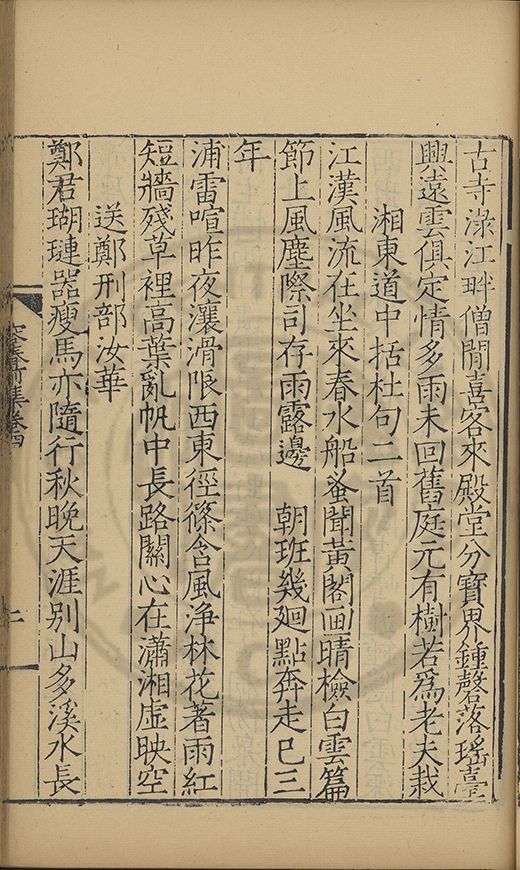 古寺淥江畔僧閒喜客來殿堂分寶界鍾磬落瑤臺
興遠雲俱定情多雨未回舊庭元有樹若爲老夫栽
湘東道中括杜句二首
江漢風流在坐來春水船蚤聞黃閣画晴檢白雲篇
節上風塵際司存雨露邊　朝班幾廻點奔走已三
年
浦雷喧昨夜瀼滑限西東徑篠含風淨林花著雨紅
短牆殘草裡高葉亂帆中長路關心在瀟湘虛映空
送鄭刑部汝華
鄭君瑚璉器瘦馬亦隨行秋晚天涯别山多溪水長